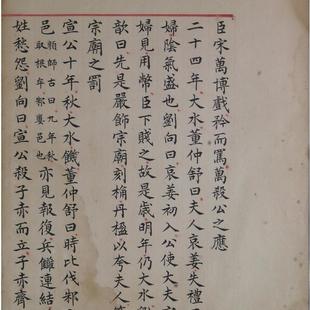 臣宋萬博戲矜而罵萬殺公之應
二十四年大水董仲舒曰夫人哀姜失禮
婦陰氣盛也劉向曰哀姜初入公使大夫宗
婦見用幣臣下賤之故是歲明年仍大水
歆曰先是嚴飾宗廟刻桷丹楹以夸夫人
宗廟之罰
宣公十年秋大水饑董仲舒曰時比伐邾
邑師古曰九年秋取根牟邾婁邑也亦見報復兵讎連結
姓愁怨劉向曰宣公殺子赤而立子赤齊